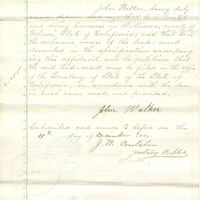 John Walker, being duly
sworn deposes and says that he is
doing business in Williams, county of
Colusa, State of California; and that he is
the exclusive owner of the trade-mark
described in the specification accompanying
this affidavit, and the petition that
the said trade-mark may be filed in the office
of the Secretary of State of the State
of California, in accordance with the law
in such cases made and provided.
John Walker
Subscribed and sworn to before me this
11th day of December
J. W.
Notary Public